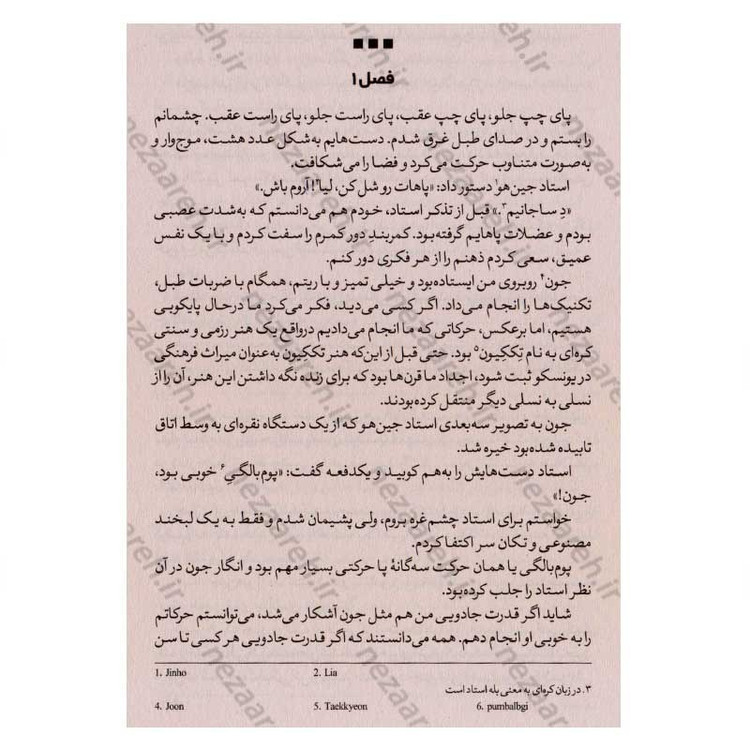 فصل ۱
پای چپ جلو، پای چپ عقب، پای راست جلو، پای راست عقب. چشمانم
را بستم و در صدای طبل غرق شدم. دست‌هایم به‌شکل عدد هشت، موج‌وار و
به‌صورت متناوب حرکت می‌کرد و فضا را می‌شکافت.
استاد جین‌هو۱ دستور داد: «پاهات رو شل کن، لیا۲! آروم باش.»
«دِ ساجانیم۳.» قبل از تذکر استاد، خودم هم می‌دانستم که به‌شدت عصبی
بودم و عضلات پاهایم گرفته‌بود. کمربندِ دور کمرم را سفت کردم و با یک نفس
عمیق، سعی کردم ذهنم را از هر فکری دور کنم.
جون۴ روبروی من ایستاده‌بود و خیلی تمیز و با ریتم، همگام با ضربات طبل،
تکنیک‌ها را انجام می‌داد. اگر کسی می‌دید، فکر می‌کرد ما درحال پایکوبی
هستیم، اما برعکس، حرکاتی که ما انجام می‌دادیم درواقع یک هنر رزمی و سنتی
کره‌ای به نام تِککِیون۵ بود. حتی قبل از این‌که هنر تککِیون به‌عنوان میراث فرهنگی
در یونسکو ثبت شود، اجداد ما قرن‌ها بود که برای زنده نگه داشتن این هنر، آن را از
نسلی به نسلی دیگر منتقل کرده‌بودند.
جون به تصویر سه‌بعدی استاد جین‌هو که از یک دستگاه نقره‌ای به وسط اتاق
تابیده شده‌بود خیره شد.
استاد دست‌هایش را به‌هم کوبید و یکدفعه گفت: «پوم‌بالگیِ۶ خوبی بود،
جون!»
خواستم برای استاد چشم‌غره بروم، ولی پشیمان شدم و فقط به یک لبخند
مصنوعی و تکان سر اکتفا کردم.
پوم‌بالگی یا همان حرکت سه‌گانهٔ پا حرکتی بسیار مهم بود و انگار جون در آن
نظر استاد را جلب کرده‌بود.
شاید اگر قدرت جادویی من هم مثل جون آشکار می‌شد، می‌توانستم حرکاتم
را به خوبی او انجام دهم. همه می‌دانستند که اگر قدرت جادویی هر کسی تا سن
1. Jinho 2. Lia
۳. در زبان کره‌ای به معنی بله استاد است
4. Joon 5. Taekkyeon 6. pumbalbgi
nezaareh.ir